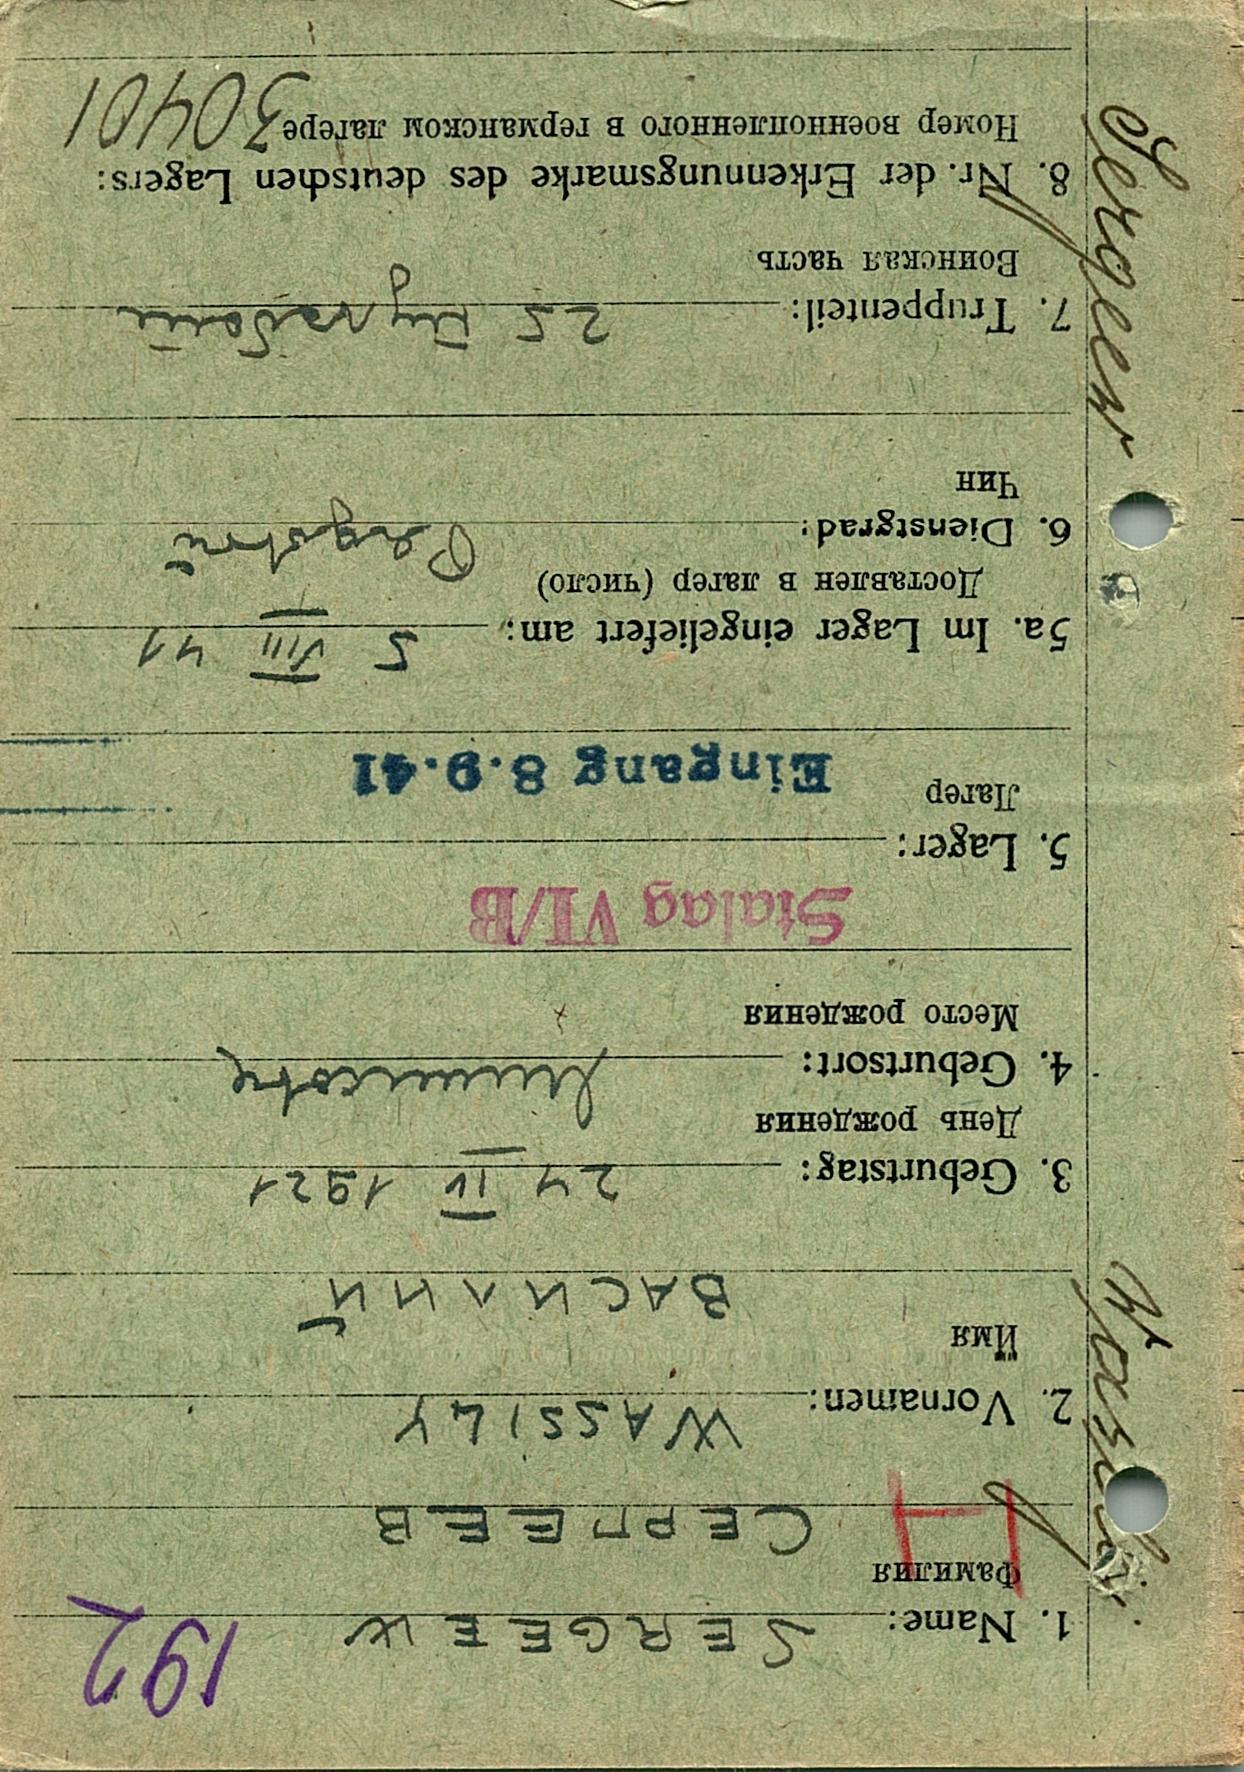 192
1. Name: SERGEEW
Фамилия СЕРГЕЕВ
2. Vornamen: WASSILY
Имя
ВАСИЛИЙ
3. Geburtstag: 24 IV 1921
День рождения
4. Geburtsort:
Место рождения
Stalag VI/B
5. Lager:
Лагер
Eingang 8.9.41
5a. Im Lager eingeliefert am: 5 VIII 41
Доставлен в лагер (число)
6. Dienstgrad:
Чин
7. Truppenteil: 25
Воинская часть
8. Nr. der Erkennungsmarke des deutschen Lagers:
Номер военнопленного в германском лагере 30401
Wassily
Sergeew